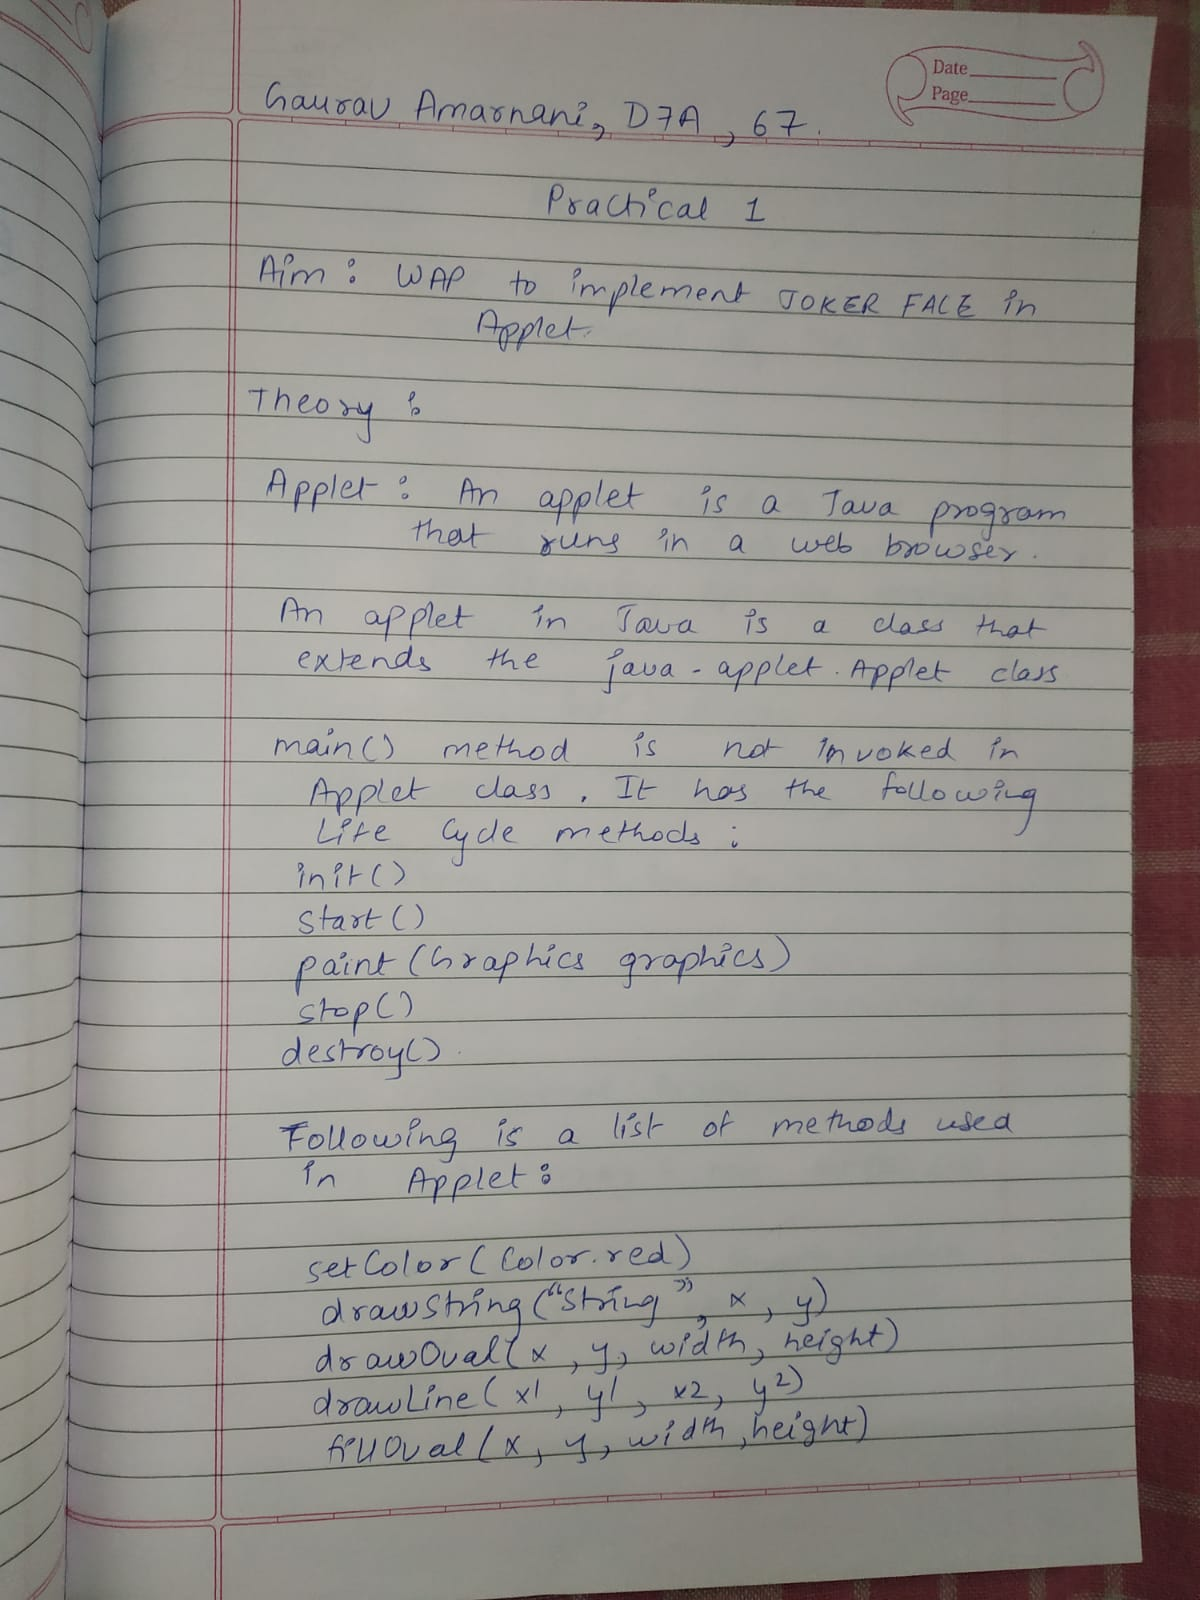 Date
Page
Gaurav Amarnani, D7A, 67.
Practical 1
Aim : WAP to implement JOKER FACE in
Applet.
Theory :
Applet : An applet is a Java program
that runs in a web browser.
An applet in Java is a class that
extends the java-applet.Applet class
main() method is not invoked in
Applet class. It has the following
Life Cycle methods :
init()
start()
paint(Graphics graphics)
stop()
destroy().
Following is a list of methods used
in Applet :
setColor(Color.red)
drawString("String", x, y)
drawOval(x, y, width, height)
drawLine(x1, y1, x2, y2)
fillOval(x, y, width, height)